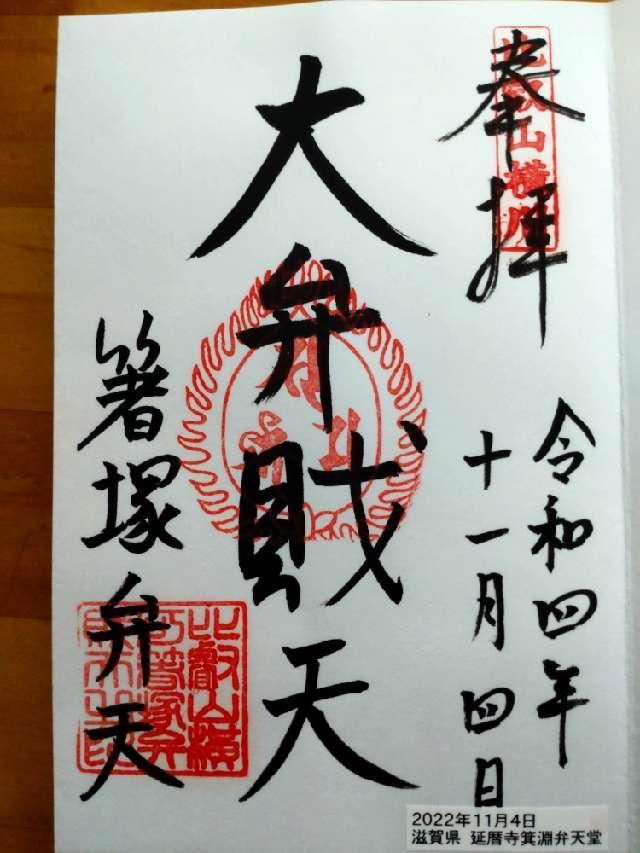 奉拝
比叡山横川
令和四年
十一月四日
大弁財天
箸塚弁天
2022年11月4日
滋賀県 延暦寺箕淵弁天堂